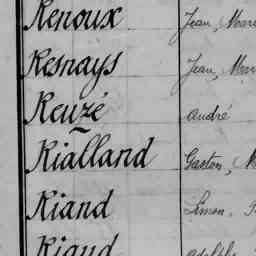 Renoux Jean, Marie
Resnays Jean, Marie
Reuzé André
Rialland Gaston, M
Riand Simon,
Riaud Adolphe